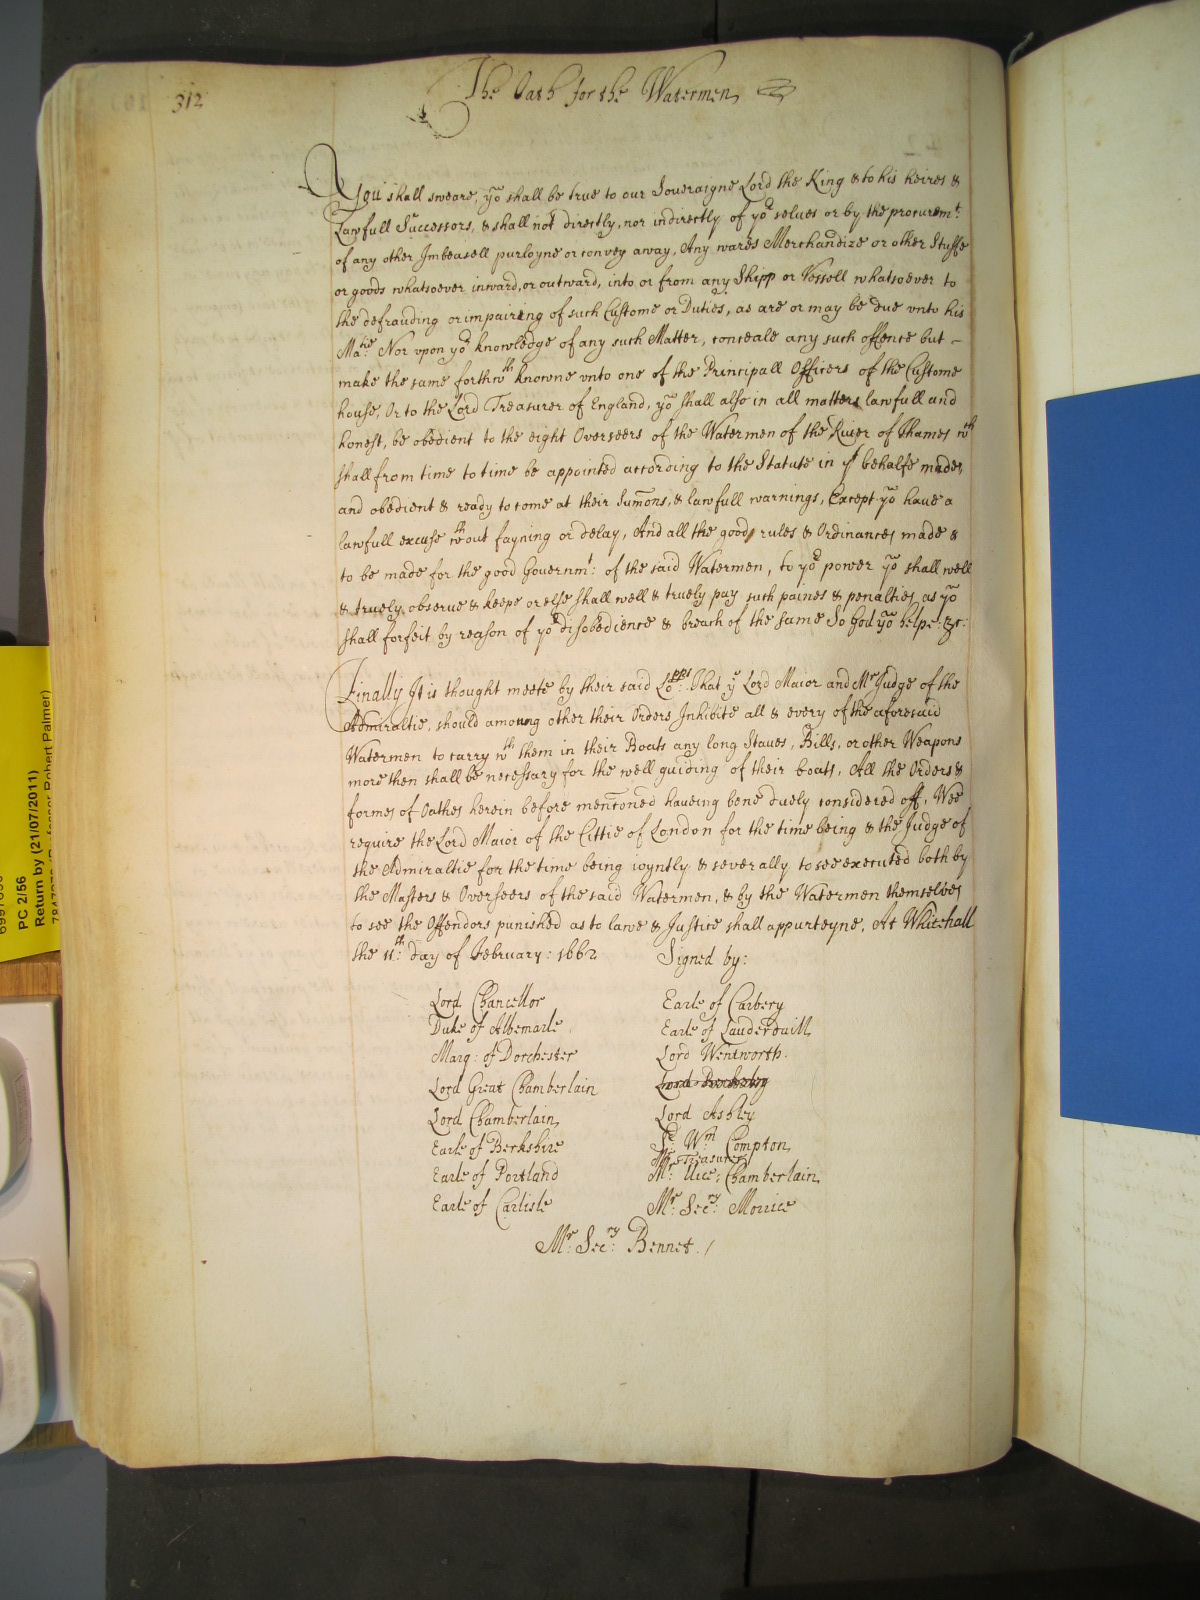 312
The Oath for the Watermen
You shall sweare, yo͞ shall be true to our Soveraigne Lord the King & to his heires &
Lawfull Successors, & shall not directly, nor indirectly of yoʳ selues or by the procuremᵗ:
of any other Imbeasell purloyne or convey away, Any wares Merchandize or other Stuffe
or goods whatsoever inward, or outward, into or from any Shipp or Vessell whatsoever to
the defrauding or impairing of such Custome or Duties, as are or may be due vnto his
Maᵗⁱᵉ: Nor vpon yoʳ knowledge of any such Matter, conceale any such offence but –
make the same forthwᵗʰ knowne vnto one of the Principall Officers of the Custome
house, Or to the Lord Treasurer of England, yo͞ shall also in all matters lawfull and
honest, be obedient to the eight Overseers of the Watermen of the River of Thames wᶜʰ
shall from time to time be appointed according to the Statute in yᵗ behalfe made,
and obedient & ready to come at their Sum͞ons, & lawfull warnings, Except yo͞ have a
lawfull excuse wᵗʰout fayning or delay, And all the good rules & Ordinances made &
to be made for the good Governmᵗ: of the said Watermen, to yoʳ power yo͞ shall well
& truely observe & keepe or else shall well & truely pay such paines & penalties as yo͞
shall forfeit by reason of yoʳ disobedience & breach of the same So God yo͞ helpe: &c:
Finally It is thought meete by their said Loᵖᵖˢ: That yᵉ Lord Maior and Mʳ Judge of the
Admiraltie, should amoung other their Orders Inhibite all & every of the aforesaid
Watermen to carry wᵗʰ them in their Boats any long Staues, Bills, or other Weapons
more then shall be necessary for the well guiding of their boats, All the Orders &
formes of Oathes herein before menc͞oned haueing bene duely considered off, Wee
require the Lord Maior of the Cittie of London for the time being & the Judge of
the Admiraltie for the time being ioyntly & severally to see executed both by
the Masters & Overseers of the said Watermen, & by the Watermen themselves
to see the Offendors punished as to lawe & Justice shall appurteyne, At Whitehall
the 11ᵗʰ: day of February: 1662
Signed by:
Lord Chancellor
Duke of Albemarle
Marq: of Dorchester
Lord Great Chamberlain
Lord Chamberlain
Earle of Berkshire
Earle of Portland
Earle of Carlisle
Earle of Carbery
Earle of Lauderdaill
Lord Wentworth.
Lord Berkeley
Lord Ashley
Sʳ: Wᵐ Compton
Mʳ Treasurer
Mʳ: Vice, Chamberlain
Mʳ: Secʳʸ: Morrice
Mʳ: Secʳʸ: Bennet. /
PC 2/56
Return by (21/07/2011)
Robert Palmer)